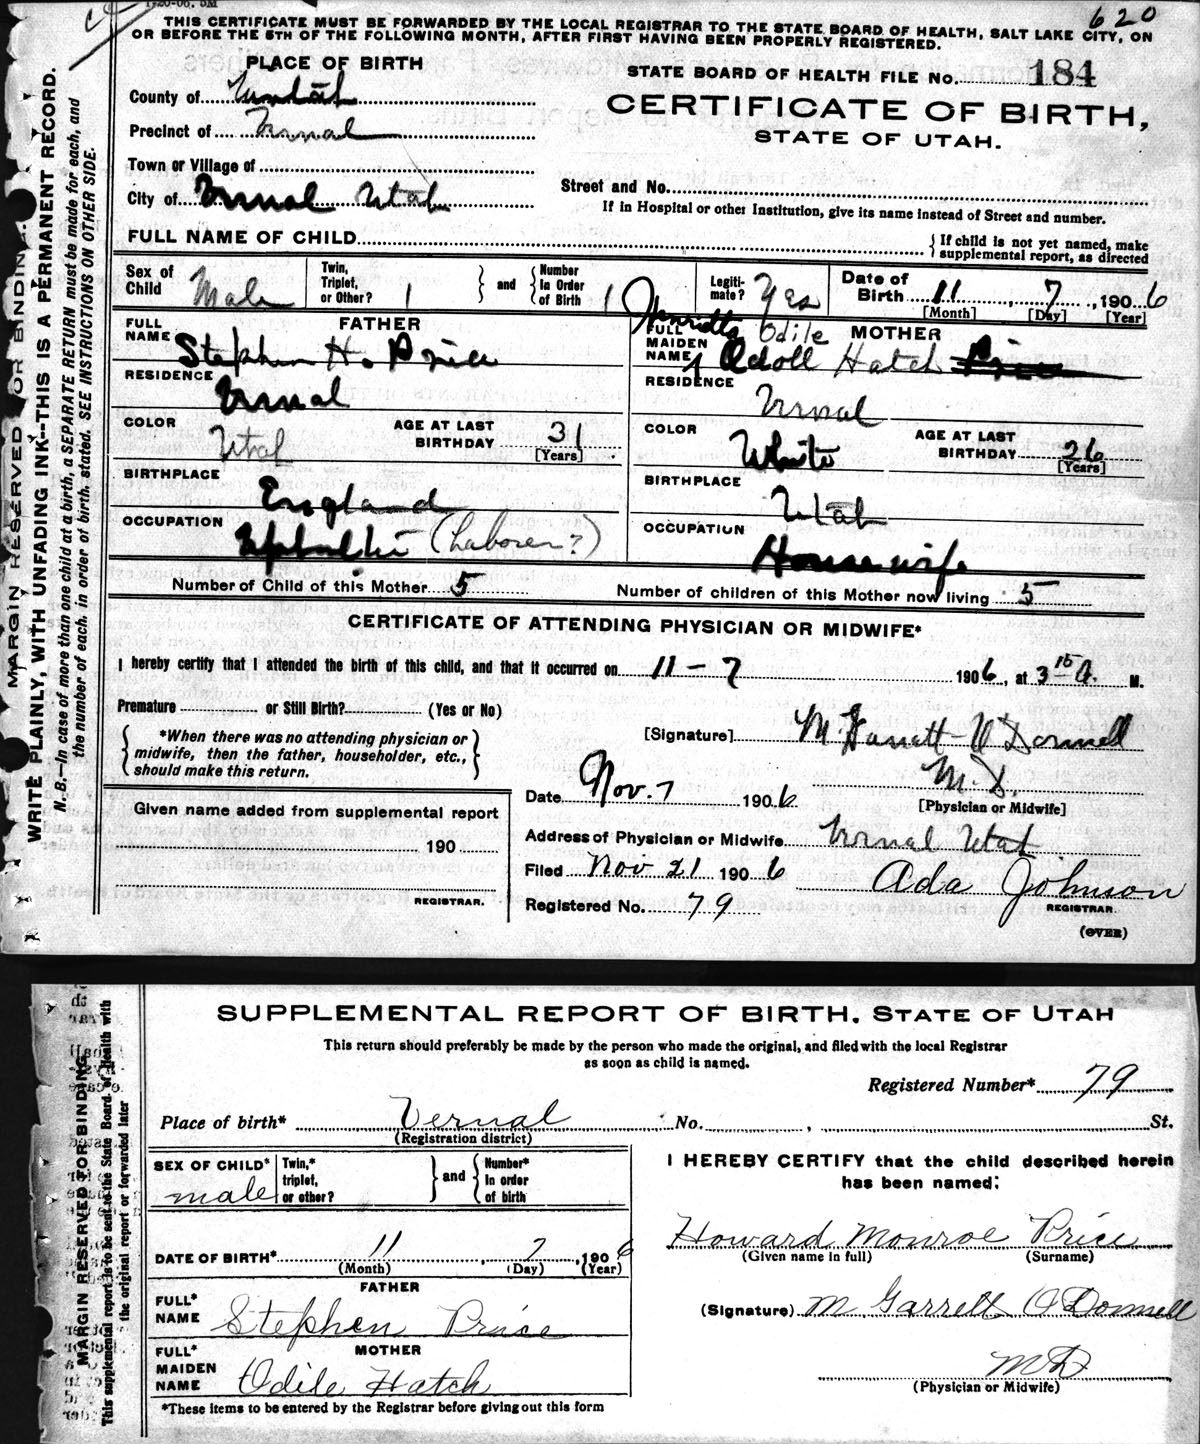 620
THIS CERTIFICATE MUST BE FORWARDED BY THE LOCAL REGISTRAR TO THE STATE BOARD OF HEALTH, SALT LAKE CITY, ON
OR BEFORE THE 5TH OF THE FOLLOWING MONTH, AFTER FIRST HAVING BEEN PROPERLY REGISTERED.
MARGIN RESERVED FOR BINDING.
WRITE PLAINLY, WITH UNFADING INK--THIS IS A PERMANENT RECORD.
N. B.—In case of more than one child at a birth, a SEPARATE RETURN must be made for each, and
the number of each, in order of birth, stated. SEE INSTRUCTIONS ON OTHER SIDE.
PLACE OF BIRTH
County of
Precinct of Vernal
Town or Village of
City of Vernal Utah
STATE BOARD OF HEALTH FILE No. 184
CERTIFICATE OF BIRTH,
STATE OF UTAH.
Street and No.
If in Hospital or other Institution, give its name instead of Street and number.
FULL NAME OF CHILD
{ If child is not yet named, make
supplemental report, as directed
Sex of Child Male
Twin, Triplet, or Other? 1
} and { Number In Order of Birth 1
Legiti-mate? Yes
Date of Birth 11, 7, 1906
[Month] [Day] [Year]
FATHER
FULL NAME Stephen H. Price
RESIDENCE Vernal
COLOR Utah
AGE AT LAST BIRTHDAY 31
[Years]
BIRTHPLACE England
OCCUPATION (Laborer?)
MOTHER
FULL MAIDEN NAME Henrietta Odile
Odoll Hatch Price
RESIDENCE Vernal
COLOR White
AGE AT LAST BIRTHDAY 26
[Years]
BIRTHPLACE Utah
OCCUPATION Housewife
Number of Child of this Mother 5
Number of children of this Mother now living 5
CERTIFICATE OF ATTENDING PHYSICIAN OR MIDWIFE*
I hereby certify that I attended the birth of this child, and that it occurred on 11 - 7 1906, at 3 15 A. M.
Premature or Still Birth? (Yes or No)
{ *When there was no attending physician or
midwife, then the father, householder, etc.,
should make this return. }
[Signature] M Garrett O'Donnell
M.D.
[Physician or Midwife]
Date Nov. 7 1906
Given name added from supplemental report
190
REGISTRAR.
Address of Physician or Midwife Vernal Utah
Filed Nov 21 1906
Ada Johnson
REGISTRAR
Registered No. 79
(OVER)
SUPPLEMENTAL REPORT OF BIRTH. STATE OF UTAH
This return should preferably be made by the person who made the original, and filed with the local Registrar
as soon as child is named.
MARGIN RESERVED FOR BINDING
This supplemental report is to be sent to the State Board of Health with
the original report or forwarded later
Registered Number* 79
Place of birth* Vernal No. , St.
(Registration district)
SEX OF CHILD* male
Twin,* triplet, or other?
} and { Number* In order of birth
DATE OF BIRTH* 11, 7, 1906
(Month) (Day) (Year)
FATHER
FULL* NAME Stephen Price
MOTHER
FULL* MAIDEN NAME Odile Hatch
*These items to be entered by the Registrar before giving out this form
I HEREBY CERTIFY that the child described herein
has been named:
Howard Monroe Price
(Given name in full) (Surname)
(Signature) M Garrett O'Donnell
MD
(Physician or Midwife)